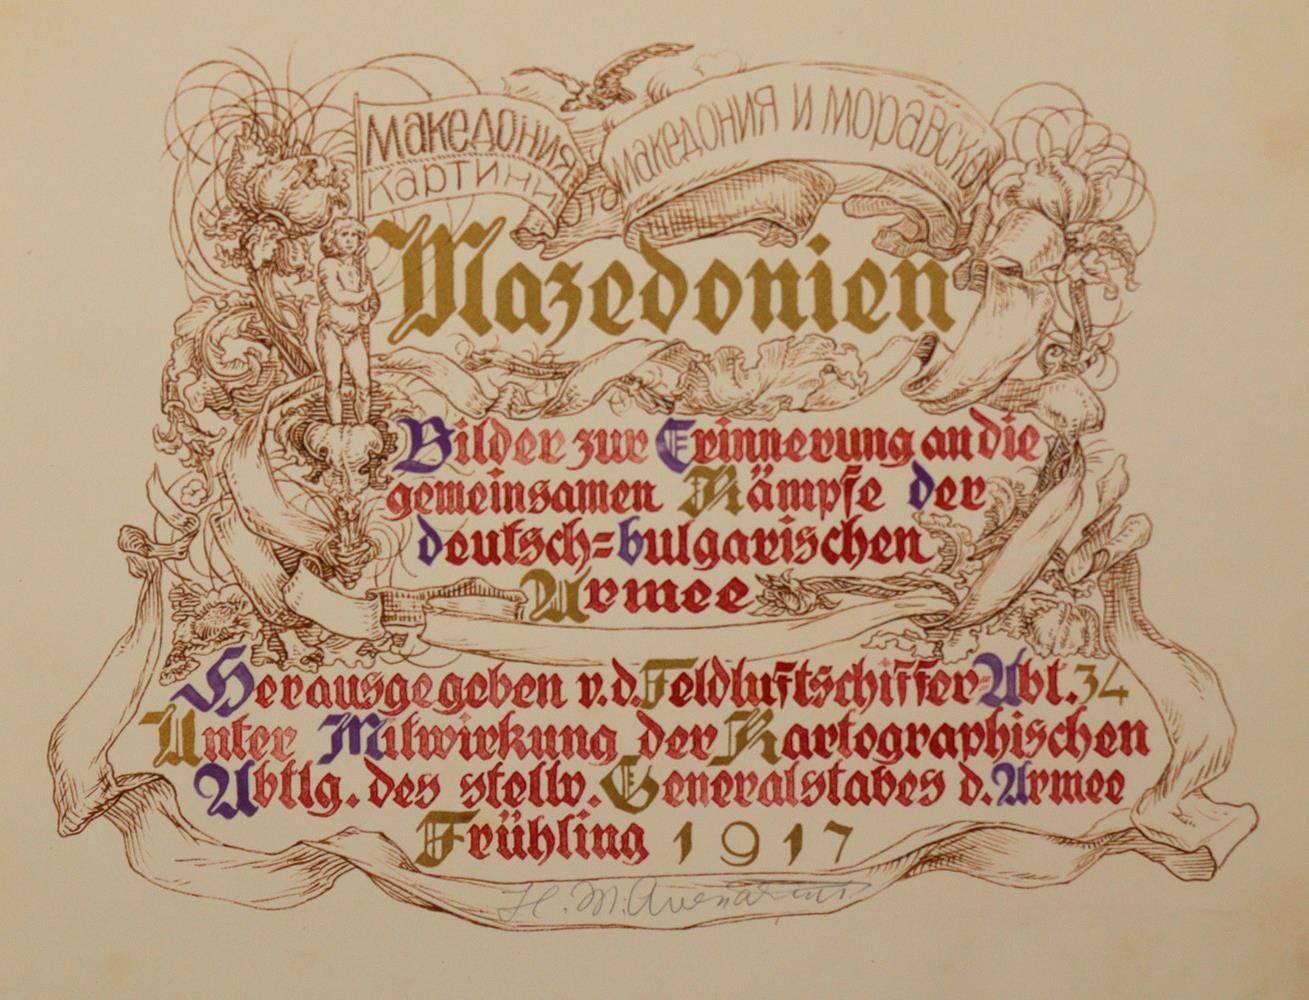 Македония
картини
Македония и моравско
Mazedonien
Bilder zur Erinnerung an die
gemeinsamen Kämpfe der
deutsch=bulgarischen
Armee
Herausgegeben v. d. Feldluftschiffer=Abt. 34
Unter Mitwirkung der Kartographischen
Abtlg. des stellv. Generalstabes d. Armee
Frühling 1917
H. M. Avenarius